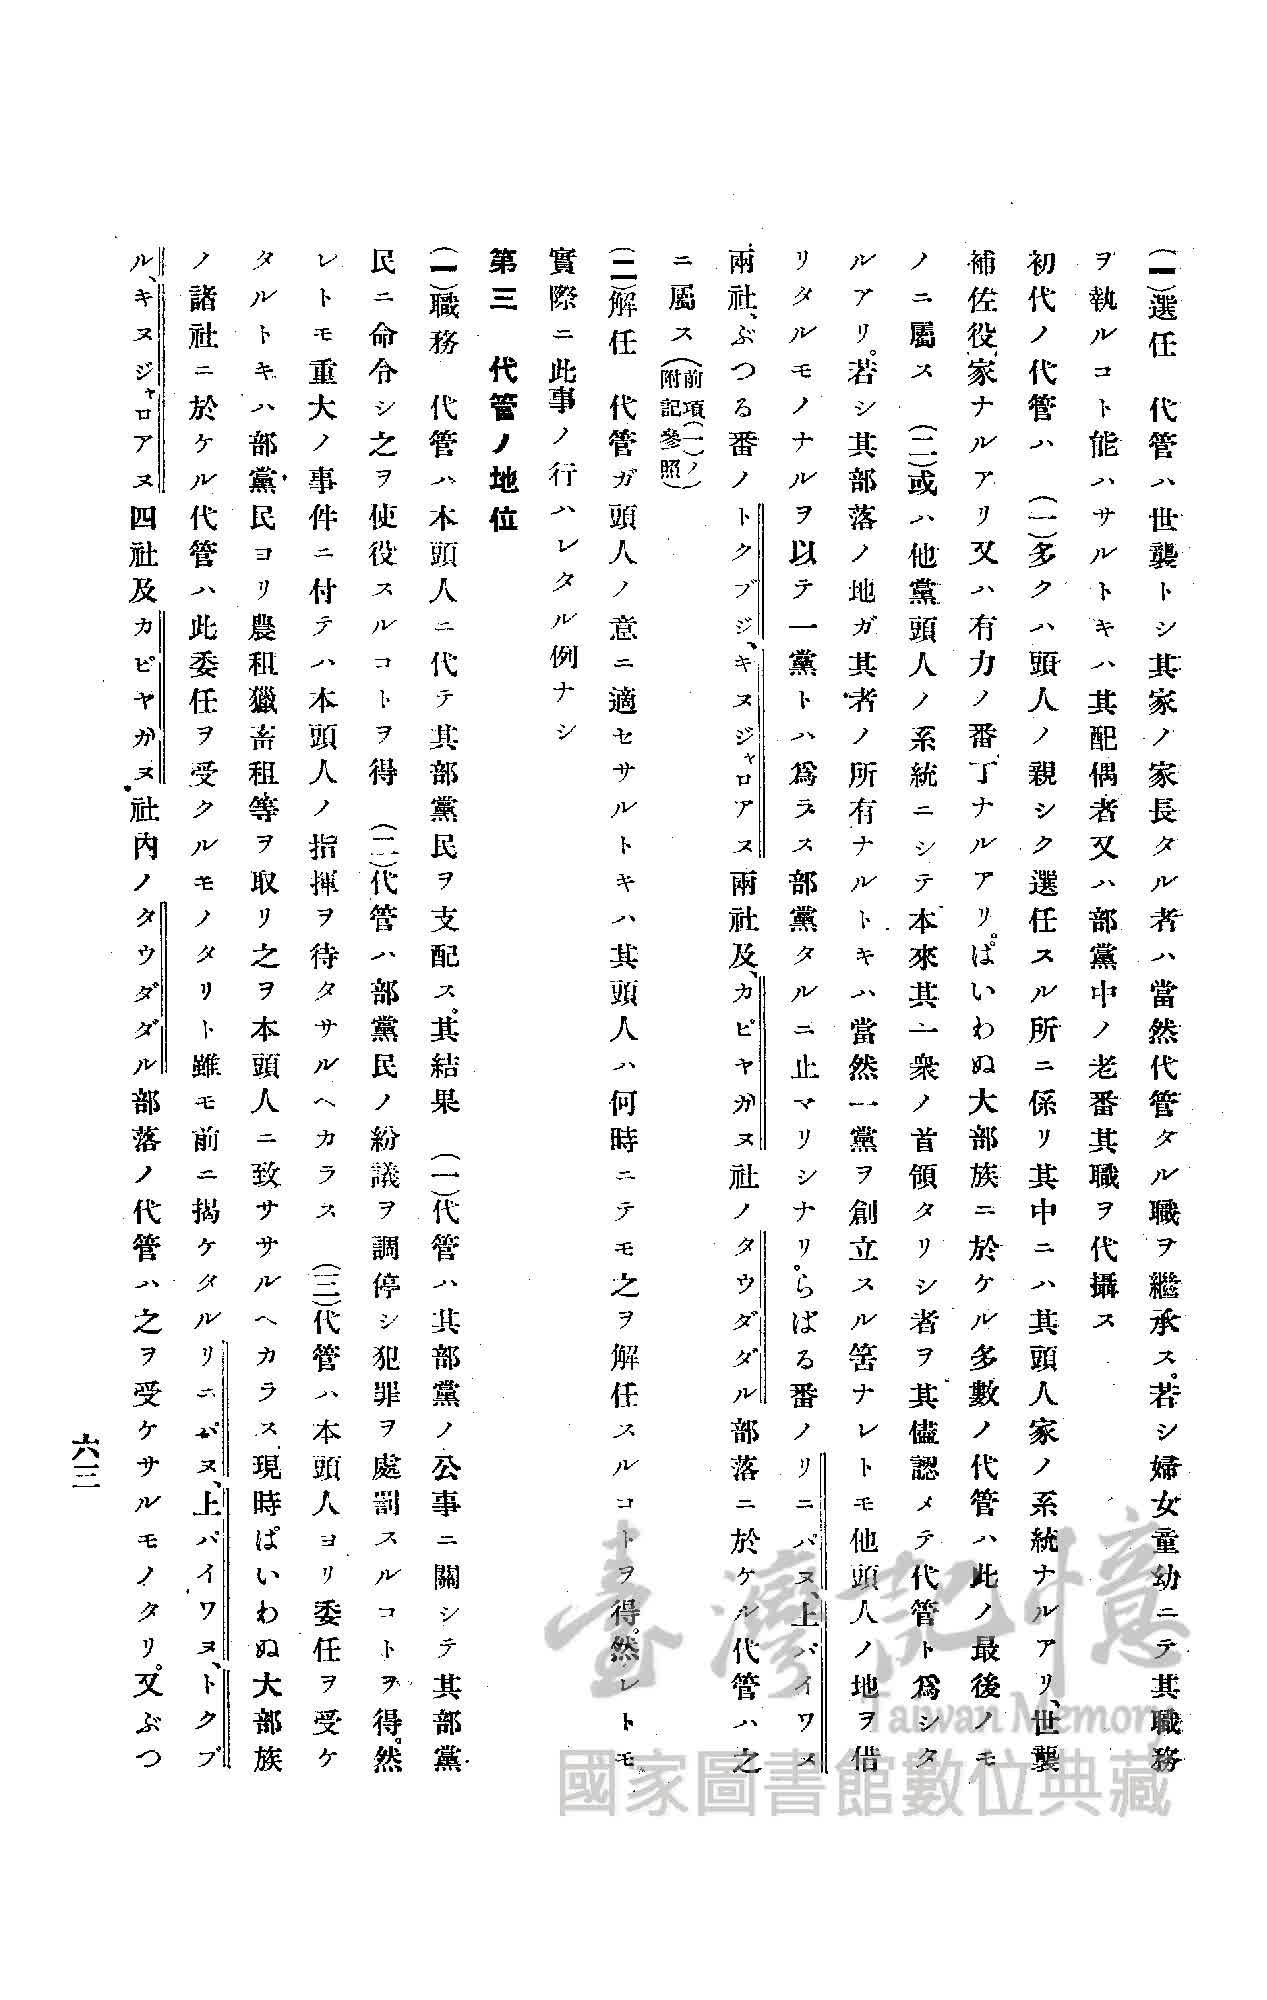 (一)選任　代管ハ世襲トシ其家ノ家長タル者ハ當然代管タル職ヲ繼承ス。若シ婦女童幼ニテ其職務
ヲ執ルコト能ハサルトキハ其配偶者又ハ部黨中ノ老番其職ヲ代攝ス
初代ノ代管ハ　(一)多クハ頭人ノ親シク選任スル所ニ係リ其中ニハ其頭人家ノ系統ナルアリ、世襲
補佐役家ナルアリ又ハ有力ノ番丁ナルアリ。ぱいわぬ大部族ニ於ケル多數ノ代管ハ此ノ最後ノモ
ノニ屬ス　(二)或ハ他黨頭人ノ系統ニシテ本來其一衆ノ首領タリシ者ヲ其儘認メテ代管ト爲シタ
ルアリ。若シ其部落ノ地ガ其者ノ所有ナルトキハ當然一黨ヲ創立スル筈ナレトモ他頭人ノ地ヲ借
リタルモノナルヲ以テ一黨トハ爲ラス部黨タルニ止マリシナリ。らばる番ノリニバヌ、上バイワヌ
兩社、ぶつる番ノトクブジ、キヌジャロアヌ兩社及、カピヤガヌ社ノタウダダル部落ニ於ケル代管ハ之
ニ屬ス(前項(一)ノ附記參照)
(二)解任　代管ガ頭人ノ意ニ適セサルトキハ其頭人ハ何時ニテモ之ヲ解任スルコトヲ得。然レトモ
實際ニ此事ノ行ハレタル例ナシ
第三　代管ノ地位
(一)職務　代管ハ本頭人ニ代テ其部黨民ヲ支配ス。其結果　(一)代管ハ其部黨ノ公事ニ關シテ其部黨
民ニ命令シ之ヲ使役スルコトヲ得　(二)代管ハ部黨民ノ紛議ヲ調停シ犯罪ヲ處罰スルコトヲ得。然
レトモ重大ノ事件ニ付テハ本頭人ノ指揮ヲ待タサルヘカラス　(三)代管ハ本頭人ヨリ委任ヲ受ケ
タルトキハ部黨民ヨリ農租獵畜租等ヲ取リ之ヲ本頭人ニ致ササルヘカラス現時ぱいわぬ大部族
ノ諸社ニ於ケル代管ハ此委任ヲ受クルモノタリト雖モ前ニ揭ケタルリニバヌ、上バイワヌ、トクブ
ル、キヌジャロアヌ四社及カピヤガヌ社内ノタウダダル部落ノ代管ハ之ヲ受ケサルモノタリ。又ぶつ
六三
臺灣記憶
Taiwan Memory
國家圖書館數位典藏